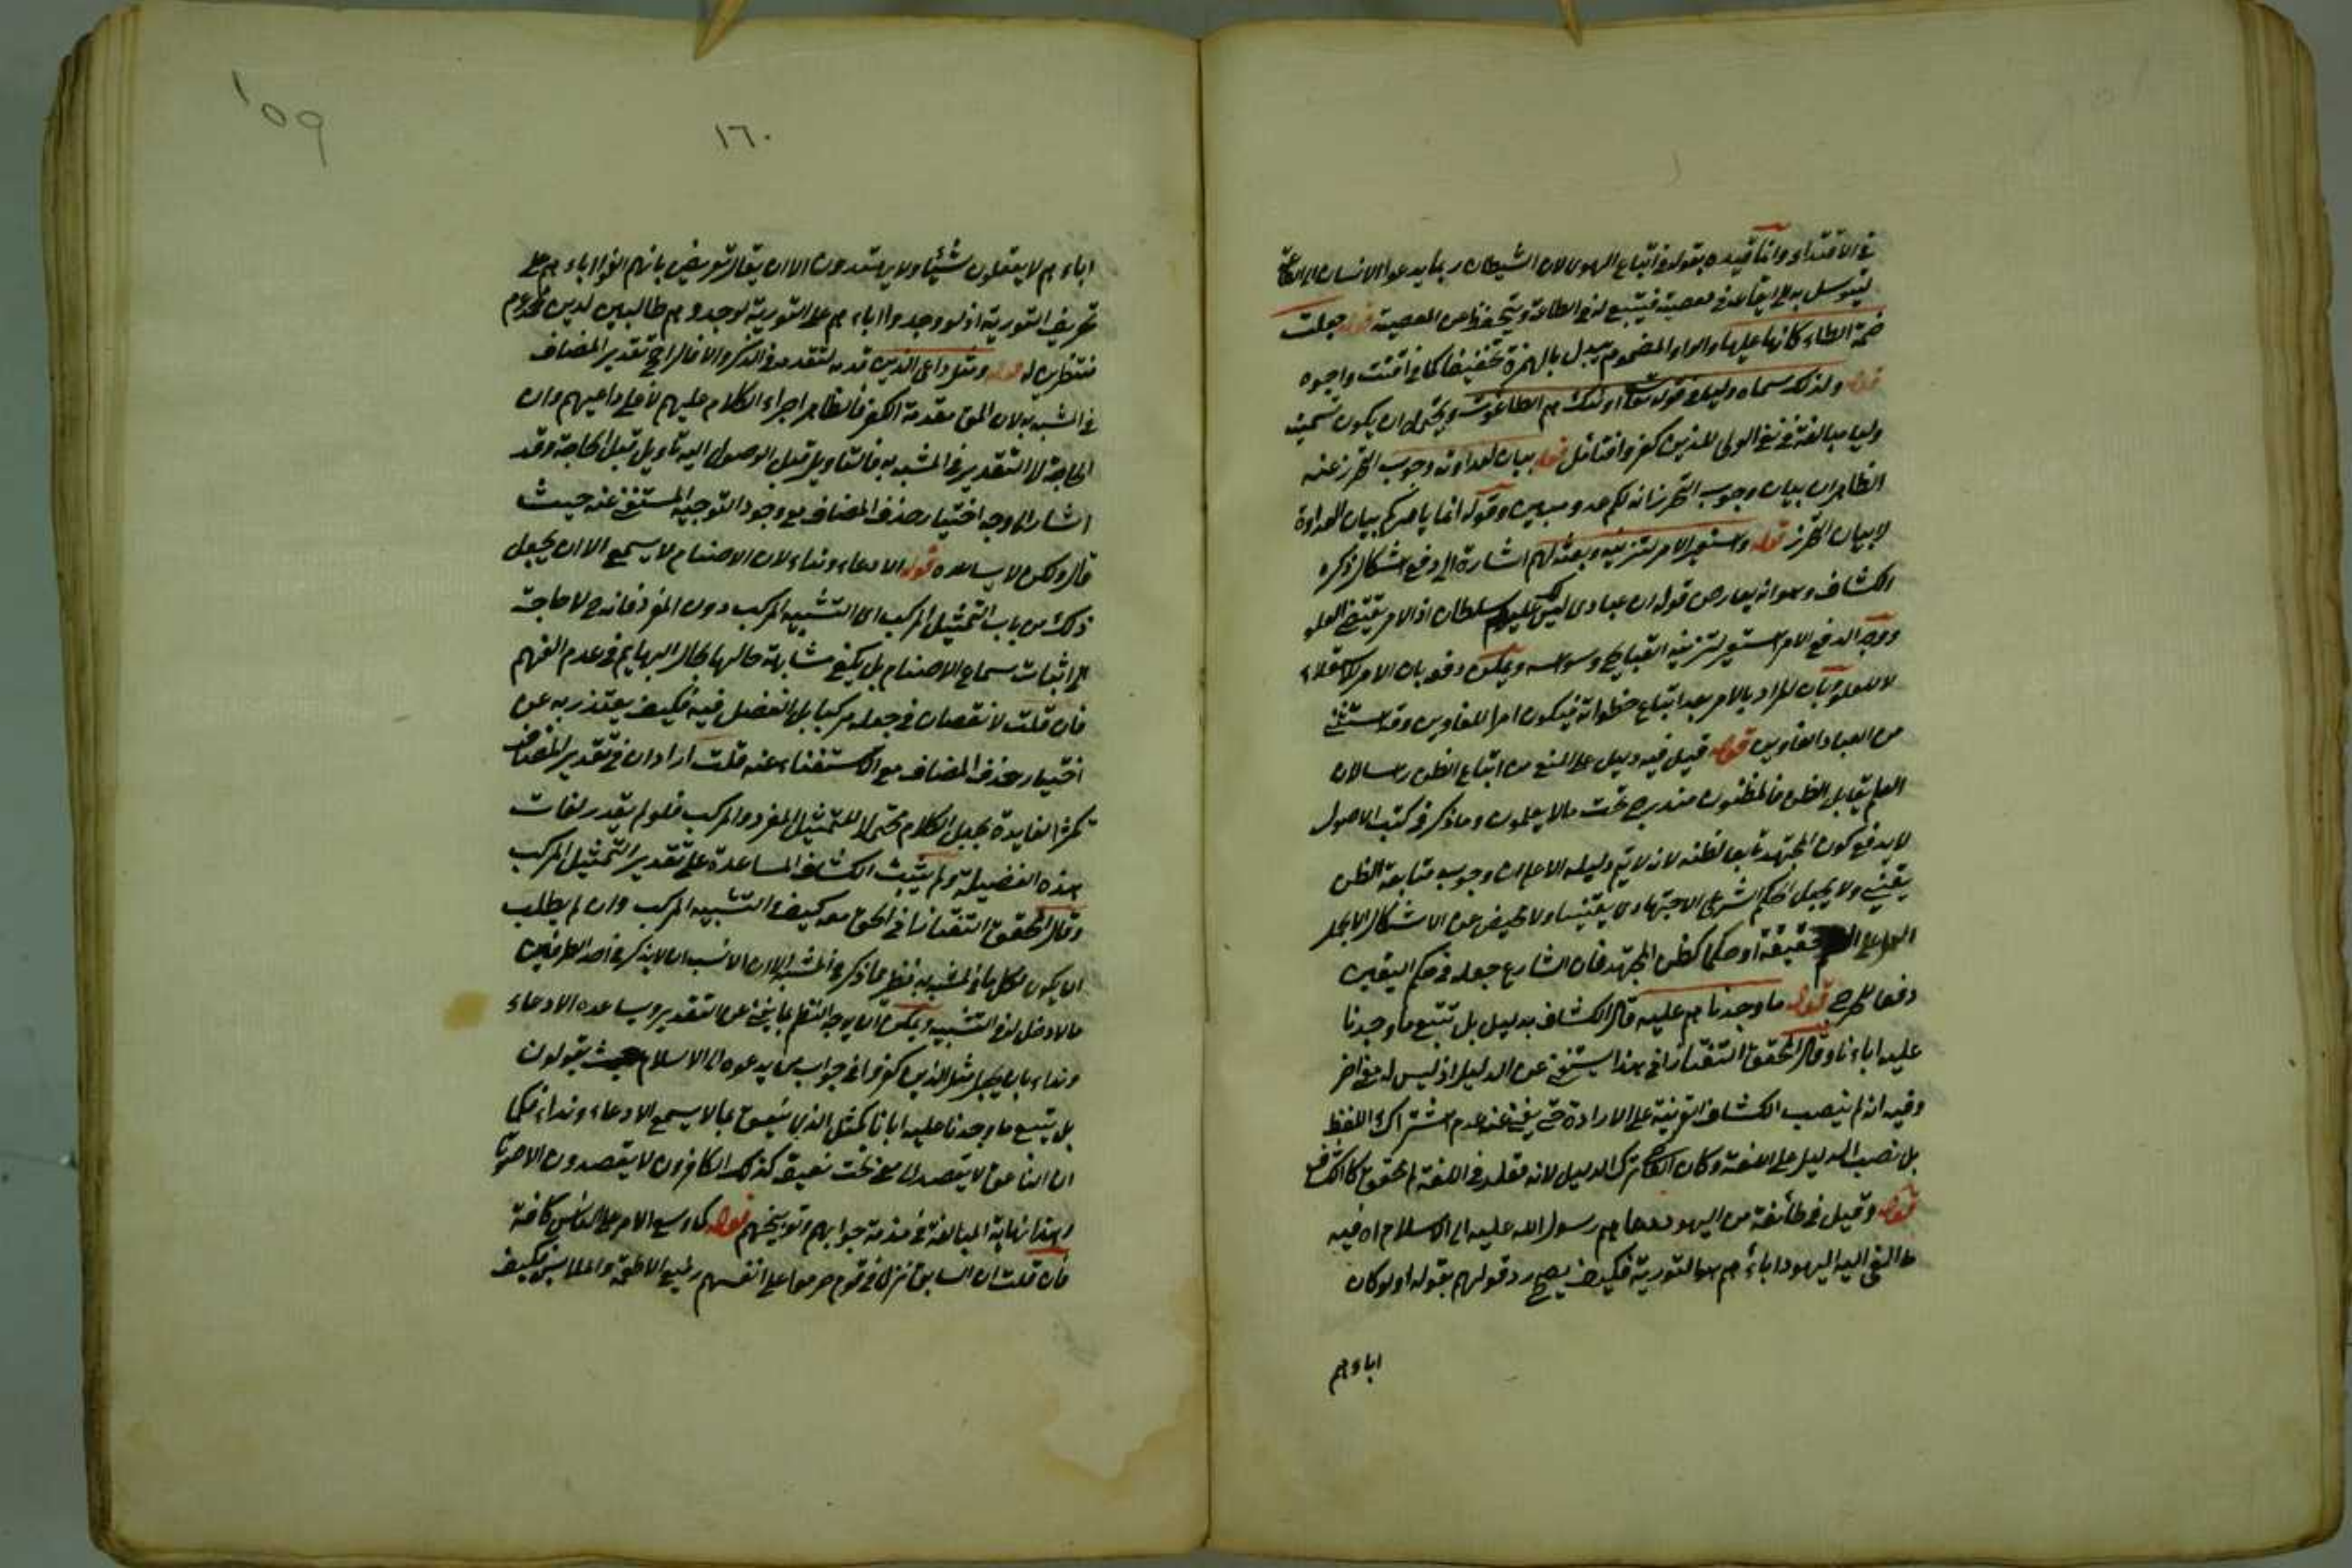 في الاقتداء وانما قيده بقوله في اتباع الهوى لان الشيطان ربما يدعو الانسان الى الطاعة
ليتوسل به الى ايقاعه في معصية فيتبع له في الطاعة ويتحفظ عن المعصية قوله جعلت
ضمة الطاء كانها عليها والواو المضموم يبدل بالهمزة تخفيفا كما في اقتت واجوه
قوله ولذلك سماه وليا في قوله تعالى اولئك هم الطاغوت ويحتمل ان يكون تسميته
وليا مبالغة في نفي الولي للذين كفروا فتامل قوله بيان لعداوته وجوب التحرز عنه
الظاهر ان بيان وجوب التحرز انه لكم عدو مبين وقوله انما يامركم بيان العداوة
لا بيان التحرز قوله واستعير الامر لتزيينه وبعثه لهم اشارة الى دفع اشكال ذكره
الكشاف وهو انه يعارض قوله ان عبادي ليس لك عليهم سلطان اذ الامر يقتضي العلو
ووجه الدفع الامر استعير لتزيينه القبايح ووسوسه ويمكن دفعه بان الامر للاستعلاء
لا للعلو وبان المراد بالامر بعد اتباع خطواته فيكون امرا للغاوين وقد استثنى
من العباد الغاوين قوله قيل فيه دليل على المنع من اتباع الظن رسالان
العلم يقابل الظن فالمظنون مندرج تحت مالا يعلمون وما ذكر في كتب الاصول
لا يدفع كون المجتهد تابعا لظنه لانه لا يتم دليله الا على ان وجوب متابعة الظن
يقيني ولا يجعل الحكم الشرعي الاجتهادي يقينيا ولا محيص عن الاشكال الا بحمل
العلم على حقيقة او حكما كظن المجتهد فان الشارع جعله في حكم اليقين
دفعا للحرج قوله ما وجدنا هم عليه قال الكشاف بدليل بل نتبع ما وجدنا
عليه اباءنا وقال المحقق التفتازاني هذا يستغني عن الدليل اذ ليس له معنى اخر
وفيه انه لم ينصب الكشاف القرينة على الارادة حتى يغني عنه عدم اشتراك اللفظ
بل نصب الدليل على اللغة وكان القاضي ترك الدليل لانه مقلد في اللغة لمحقق كالكشاف
قوله وقيل في طائفة من اليهود دعاهم رسول الله عليه الى الاسلام اه فيه
ما الفى اليه اليهود اباءهم هو التورية فكيف يصح رد قولهم بقوله اولو كان
اباءهم
١٥٩
١٦٠
اباءهم لا يعقلون شيئا ولا يهتدون الا ان يقال تعريض بانهم الفوا اباءهم على
تحريف التورية اذ لو وجدوا اباءهم على التورية لوجدوهم طالبين لدين محمد عم
منتظرين له قوله ومثل داعي الذين قدمه لتقدمه في الذكر والا فالراجح تقدير المضاف
في المشبه به لان المق مقدمة الكفر فالظاهر اجراء الكلام عليهم لا على داعيهم وان
الحاجة لا التقدير في المشبه به فالتاويل قبل الوصول اليه تاويل قبل الحاجة وقد
اشار الى وجه اختيار حذف المضاف مع وجود التوجيه المستغني عنه حيث
قال ولكن لا يساعده قوله الا دعاء ونداء لان الاصنام لا يسمع الا ان يجعل
ذلك من باب التمثيل المركب اي التشبيه المركب دون المفرد فانه ح لا حاجة
الى اثبات سماع الاصنام بل يكفي مشابهة حالها بحال البهايم في عدم الفهم
فان قلت لا نقصان في جعله مركبا بل الفضل فيه فكيف يعتذر به عن
اختيار حذف المضاف مع الاستغناء عنه قلت اراد ان في تقدير المضاف
تكثر الفايدة بجعل الكلام محتملا للتمثيل المفرد والمركب فلو لم يقدر لفات
هذه الفضيلة ولم يثبت الكشاف المساعدة على تقدير التمثيل المركب
وقال المحقق التفتازاني الحق معه كيف والتشبيه المركب وان لم يطلب
ان يكون لكل ما في المشبه به نظير ما ذكر في المشبه الا ان الانسب ان لا يذكر في احد الطرفين
ما لا دخل له في التشبيه ويمكن ان يوجه النظم بما يغني عن التقدير ويساعده الا دعاء
ونداء بان يجعل مثل الذين كفروا في جواب من يدعوه الى الاسلام حيث يقولون
بل نتبع ما وجدنا عليه ابانا كمثل الذي ينعق بما لا يسمع الا دعاء ونداء فكما
ان الناعق لا يقصد الى معنى تحت نعيقه كذلك الكافرون لا يقصدون الا صوتا
وهذا نهاية المبالغة في مذمة جوابهم وتوبيخهم قوله لما وسع الامر على الناس كافة
فان قلت ان السابق نزل في قوم حرموا على انفسهم رفيع الاطعمة والملابس فكيف